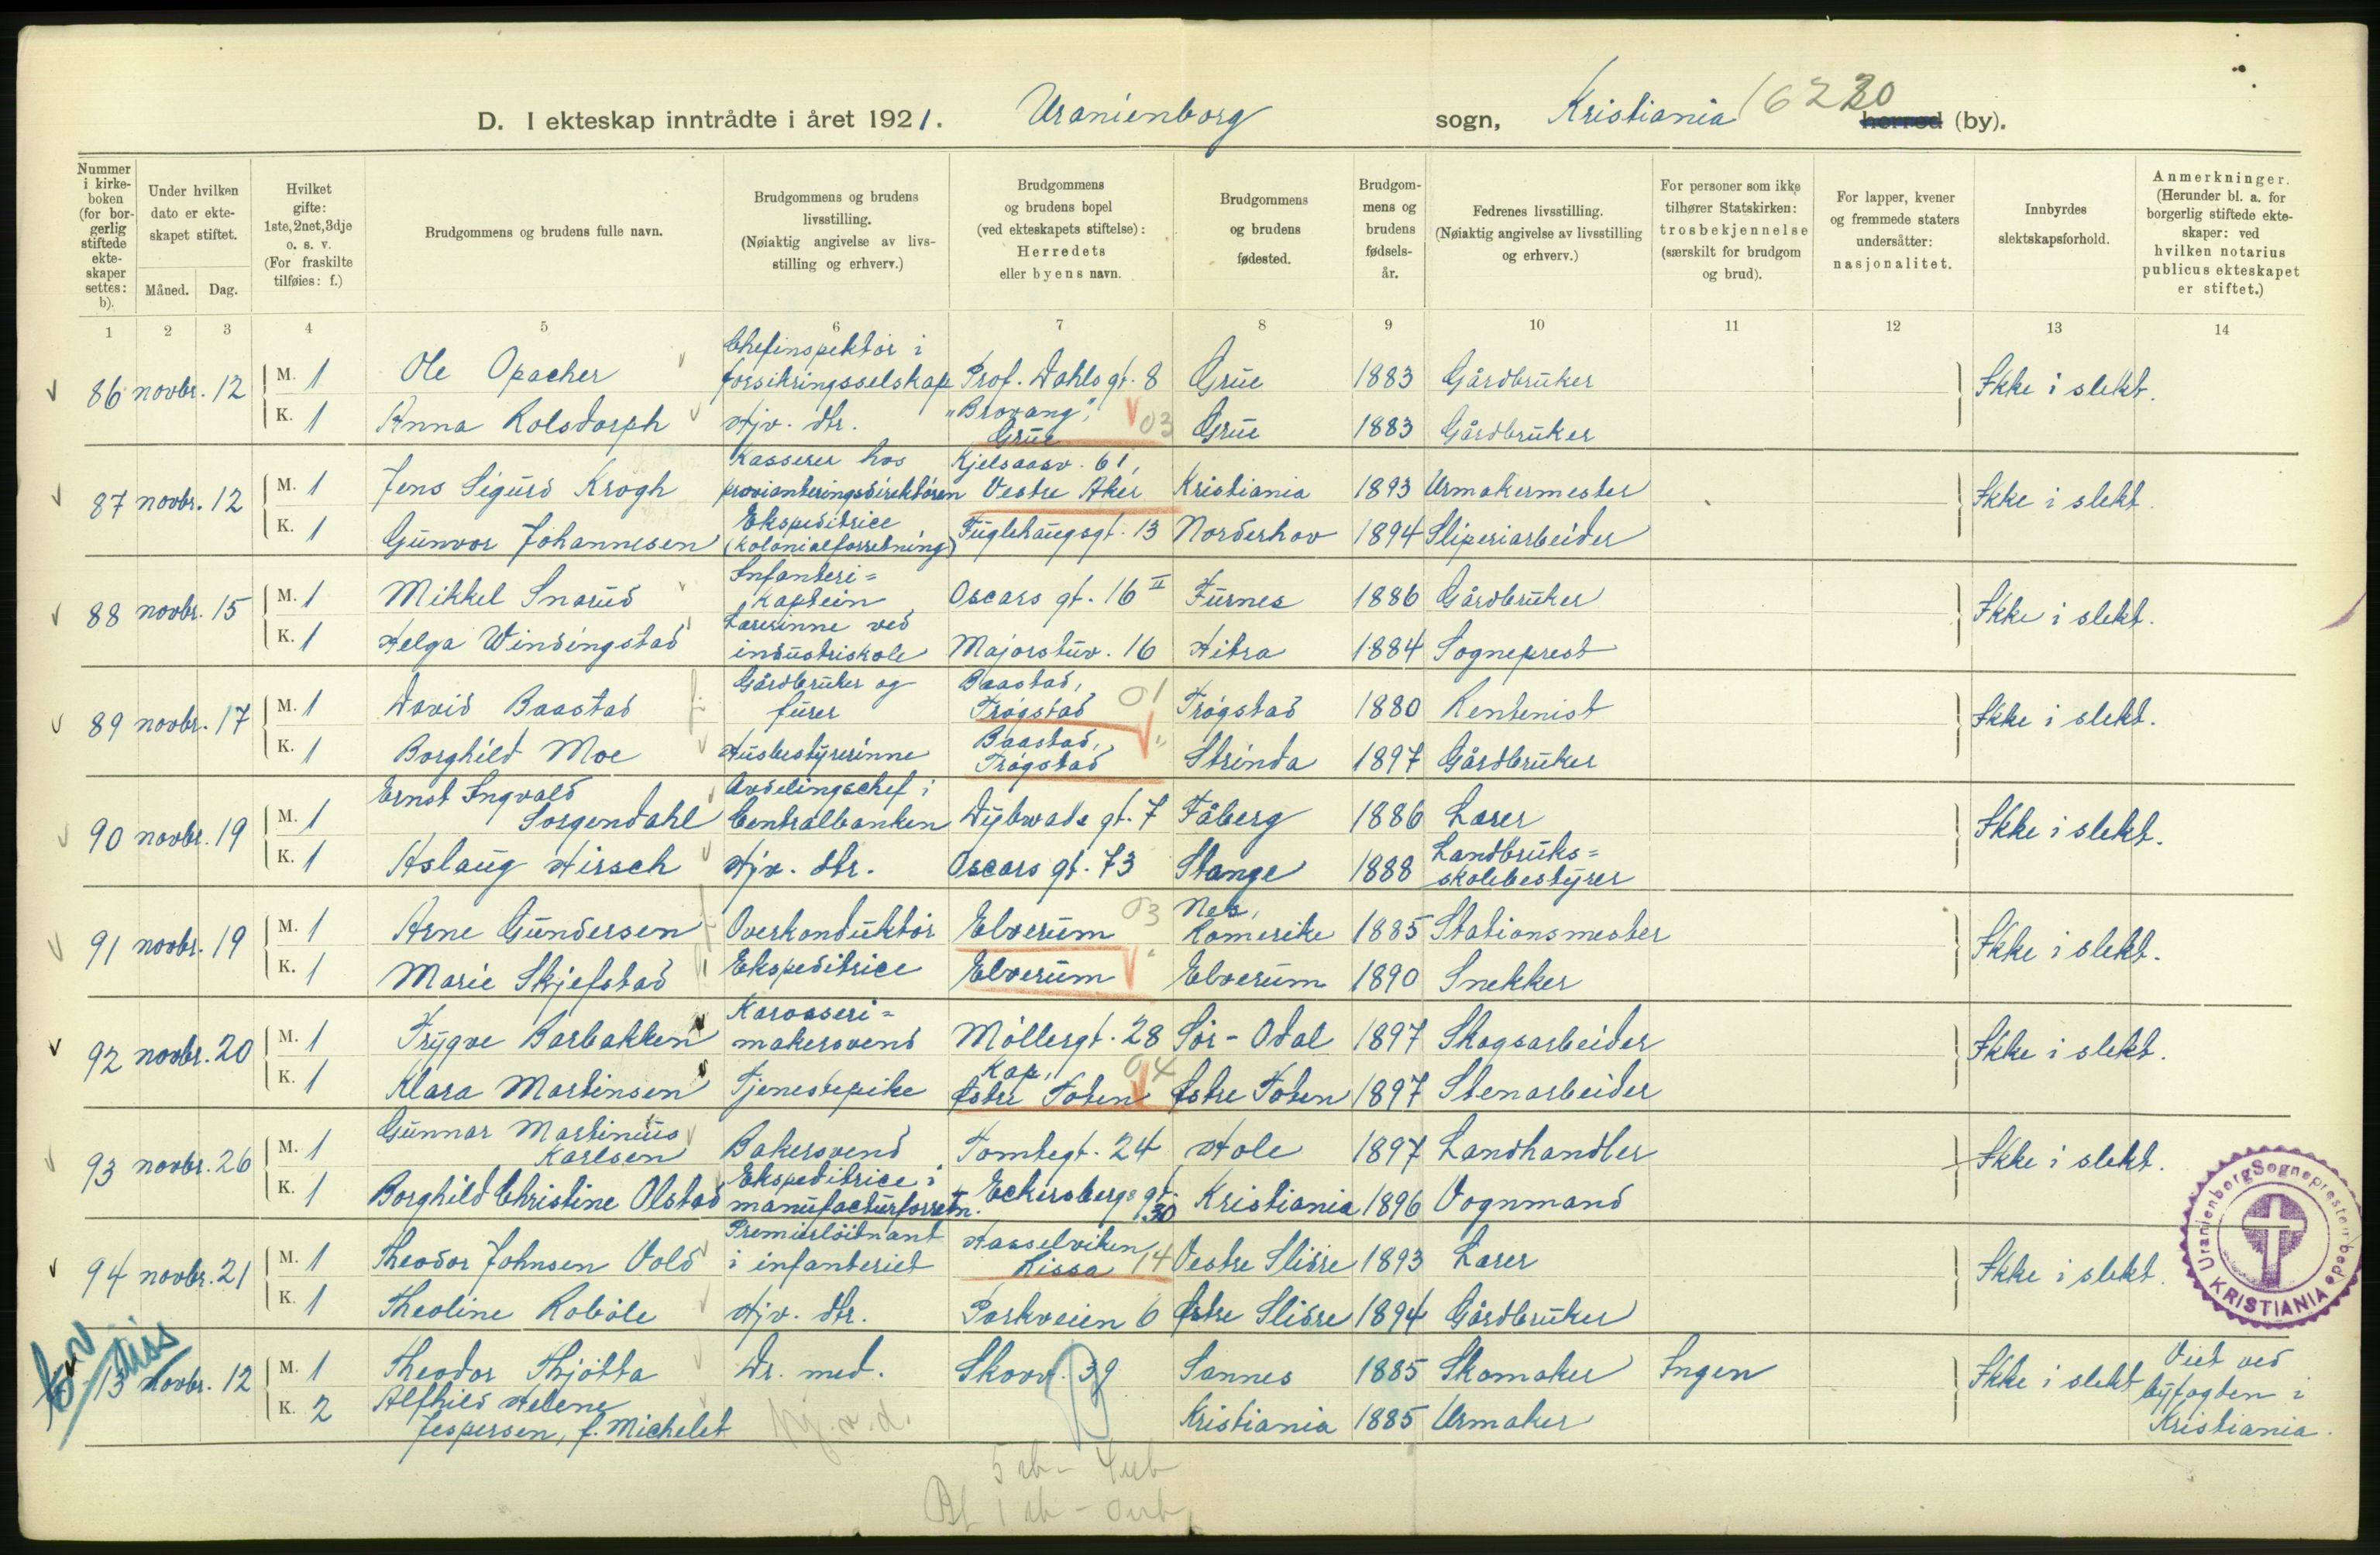 D. I ekteskap inntrådte i året 1921. Uranienborg sogn, Kristiania herred (by).
Nummer i kirke-boken (for bor-gerlig stiftede ekte-skaper settes: b).
Under hvilken dato er ekte-skapet stiftet.
Måned. Dag.
Hvilket gifte: 1ste, 2net, 3dje o. s. v. (For fraskilte tilføies: f.)
Brudgommens og brudens fulle navn.
Brudgommens og brudens livsstilling. (Nøiaktig angivelse av livs-stilling og erhverv.)
Brudgommens og brudens bopel (ved ekteskapets stiftelse): Herredets eller byens navn.
Brudgommens og brudens fødested.
Brudgom-mens og brudens fødsels-år.
Fedrenes livsstilling. (Nøiaktig angivelse av livsstilling og erhverv.)
For personer som ikke tilhører Statskirken: trosbekjennelse (særskilt for brudgom og brud).
For lapper, kvener og fremmede staters undersåtter: nasjonalitet.
Innbyrdes slektskapsforhold.
Anmerkninger. (Herunder bl. a. for borgerlig stiftede ekte-skaper: ved hvilken notarius publicus ekteskapet er stiftet.)
1 2 3 4 5 6 7 8 9 10 11 12 13 14
86 novbr. 12 M. 1 Ole Opacher Chefinspektør i forsikringsselskap Prof. Dahls gt. 8 Grue 1883 Gårdbruker Ikke i slekt.
K. 1 Anna Rolsdorph Hjv. dtr. "Brovang", Grue 03 Grue 1883 Gårdbruker
87 novbr. 12 M. 1 Jens Sigurd Krogh Kasserer hos provianteringsdirektøren Kjelsaasv. 61, Vestre Aker Kristiania 1893 Urmakermester Ikke i slekt.
K. 1 Gunvor Johannesen Ekspeditrice (kolonialforretning) Fuglehaugsgt. 13 Norderhov 1894 Sliperiarbeider
88 novbr. 15 M. 1 Mikkel Snarud Infanteri=kaptein Oscars gt. 16 II Furnes 1886 Gårdbruker Ikke i slekt.
K. 1 Helga Windingstad Lærerinne ved industriskole Majorstuv. 16 Hitra 1884 Sogneprest
89 novbr. 17 M. 1 David Baastad Gårdbruker og furer Baastad, Trøgstad 01 Trøgstad 1880 Rentenist Ikke i slekt.
K. 1 Borghild Moe Husbestyrerinne Baastad, Trøgstad " Strinda 1897 Gårdbruker
90 novbr. 19 M. 1 Ernst Ingvald Sorgendahl Avdelingschef i Centralbanken Dybwads gt. 7 Fåberg 1886 Lærer Ikke i slekt.
K. 1 Aslaug Hirsch Hjv. dtr. Oscars gt. 73 Stange 1888 Landbruks=skolebestyrer
91 novbr. 19 M. 1 Arne Gundersen Overkonduktør Elverum 03 Nes, Romerike 1885 Stationsmester Ikke i slekt.
K. 1 Marie Skjefstad Ekspeditrice Elverum " Elverum 1890 Snekker
92 novbr. 20 M. 1 Trygve Barbakken Karosseri=makersvend Møllergt. 28 Sør-Odal 1897 Skogsarbeider Ikke i slekt.
K. 1 Klara Martinsen Tjenestepike Kap, Østre Toten 04 Østre Toten 1897 Stenarbeider
93 novbr. 26 M. 1 Gunnar Martinius Karlsen Bakersvend Tomtegt. 24 Hole 1897 Landhandler Ikke i slekt.
K. 1 Borghild Christine Olstad Ekspeditrice i manufacturforretn. Eckersbergs gt. 30 Kristiania 1896 Vognmand
94 novbr. 21 M. 1 Theodor Johnsen Vold Premierløitnant i infanteriet Hasselviken Rissa 14 Vestre Slidre 1893 Lærer Ikke i slekt.
K. 1 Theoline Robøle Hjv. dtr. Parkveien 6 Østre Slidre 1894 Gårdbruker
13 novbr. 12 M. 1 Theodor Thjøtta Dr. med. Skovv. 39 Sannes 1885 Skomaker Ingen Ikke i slekt Viet ved byfogden i Kristiania.
K. 2 Alfhild Helene Jespersen, f. Michelet Hj.v.d. Kristiania 1885 Urmaker
Uranienborg Sogneprestembede KRISTIANIA